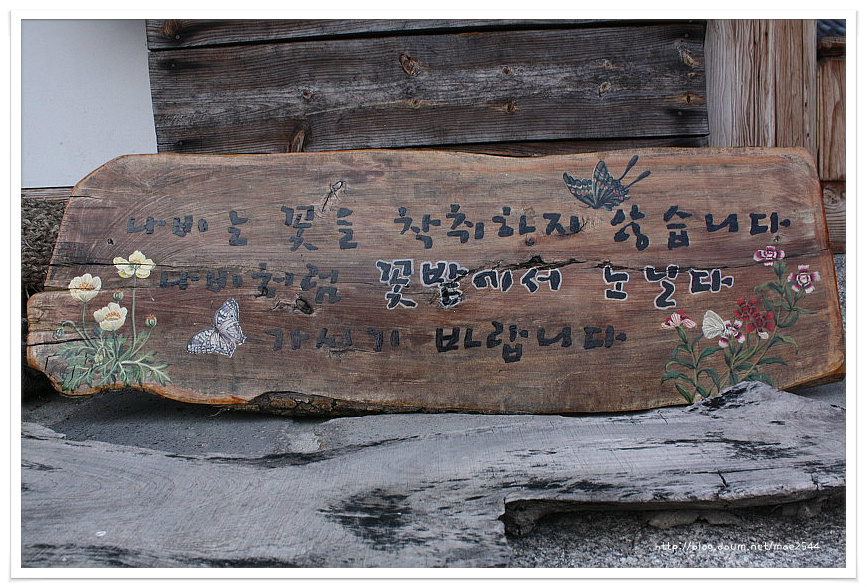 나비는 꽃을 착취하지 않습니다
나비처럼 꽃밭에서 노닐다
가시기 바랍니다
http://blog.daum.net/mae2544